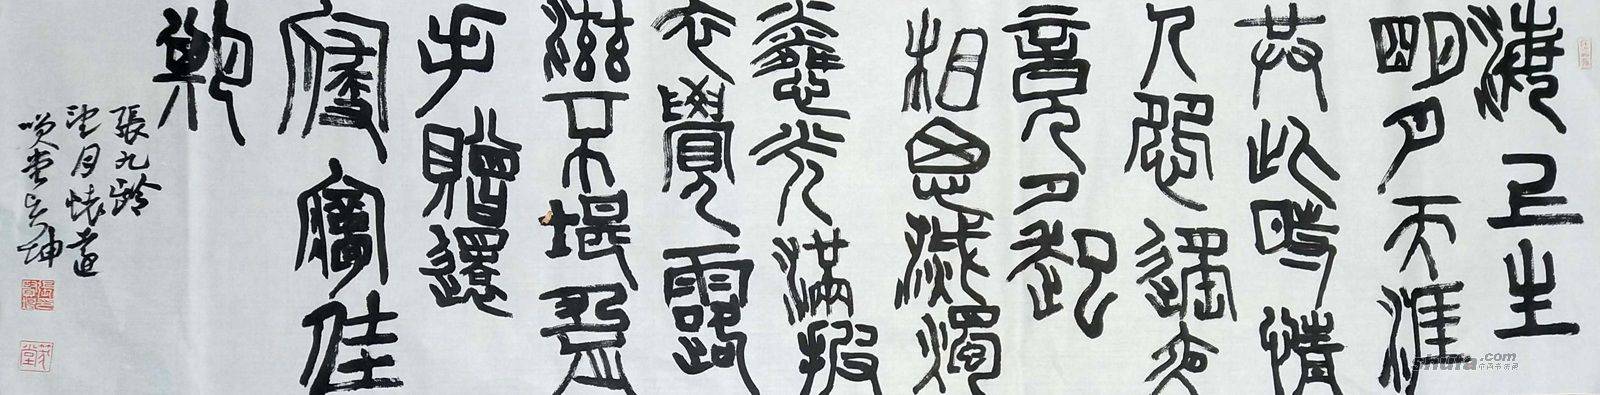 海上生
明月天涯
共此時情
人怨遥夜
竟夕起
相思滅燭
憐光滿披
衣覺露
滋不堪盈
手贈還
寝夢佳
期
張九齡
望月懷遠
笑堂坤
shufa.com
中国书法网